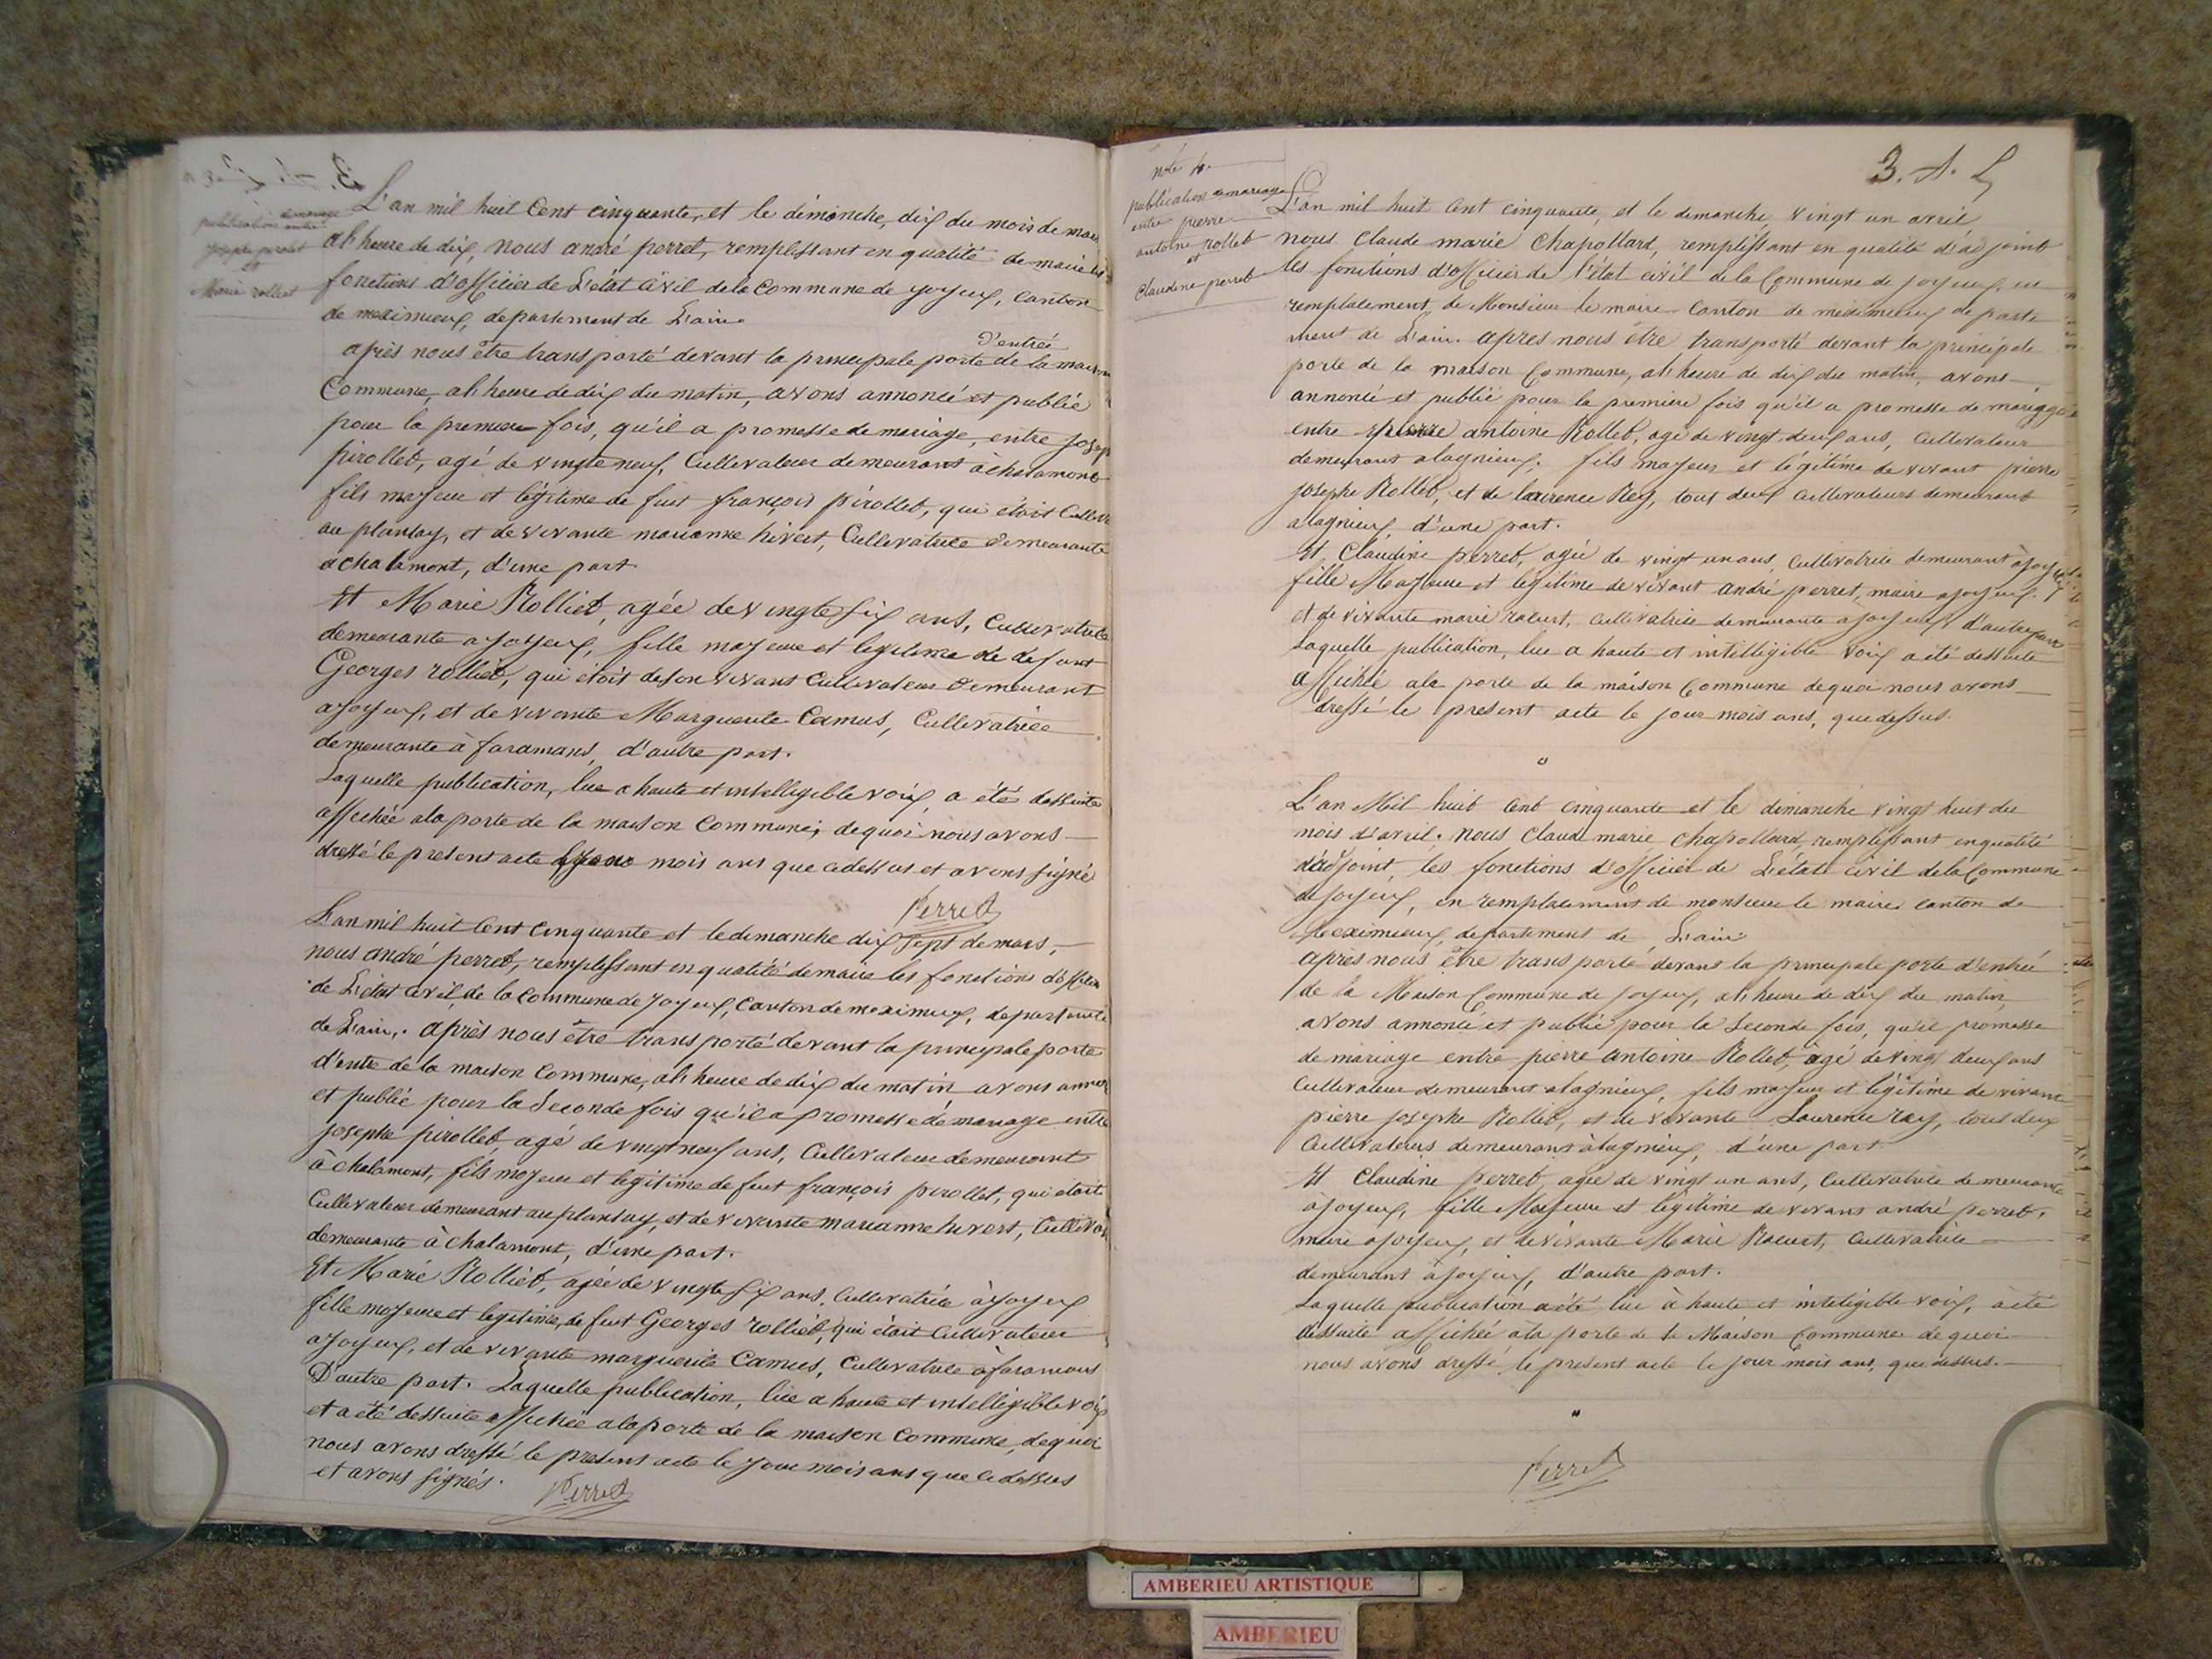 publication de mariage
entre
Joseph pirolet
et
Marie rolliet
L'an mil huit Cent cinquante, et le dimanche, dix du mois de mars
ah heure de dix, nous andré perret, remplissant en qualité de maire les
fonctions d'officier de L'état Civil de la Commune de joyeux, canton
de meximieux, departement de L'ain.
d'entrée
après nous être transporté devant la principale porte de la maison
Commune, ah heure de dix du matin, avons annoncé et publié
pour la premiere fois, qu'il a promesse de mariage, entre joseph
pirollet, agé de vingte neuf, Cultivateur demeurant à chalamont
fils majeur et légitime de fut françois pirollet, qui étoit Cultiv
au plantay, et de vivante marianne hivert, Cultivatrice demeurante
a chalamont, d'une part.
Et Marie Rolliet, agée de vingte six ans, Cultivatrice
demeurante a joyeux, fille majeure et legitime de defunt
Georges rolliet, qui étoit de son vivant Cultivateur demeurant
a joyeux, et de vivante Marguerite Camus, Cultivatrice
demeurante à faramans, d'autre part.
Laquelle publication, lue a haute et intelligible voix, a été dessuite
affichée a la porte de la maison Commune, de quoi nous avons
dressé le present acte le jour mois ans que cidessus et avons signé
Perret
L'an mil huit Cent Cinquante et le dimanche dix sept de mars,
nous andré perret, remplissant en qualité de maire les fonctions d'officier
de L'état Civil, de la Commune de Joyeux, Canton de meximieux, departement
de L'ain. après nous être transporté devant la principale porte
d'entre de la maison Commune, ah heure de dix du matin avons annon
et publié pour la Seconde fois qu'il a promesse de mariage entre
joseph pirollet, agé de vingt neuf ans, Cultivateur demeurant
à chalamont, fils majeur et legitime de fut françois pirollet, qui étoit
Cultivateur demeurant au plantay, et de vivante marianne hivert, Cultivat
demeurante à chalamont, d'une part.
Et Marie Rolliet, agée de vingte six ans, Cultivatrice à joyeux
fille majeure et legitime, de fut Georges rolliet, qui était Cultivateur
a joyeux, et de vivante marguerite Camus, Cultivatrice à faramans
D'autre part. Laquelle publication, lue a haute et intelligible voix
et a été dessuite affichée a la porte de la maison Commune, de quoi
nous avons dressé le present acte le jour mois ans que cidessus
et avons signés.
Perret
3. A. L
publication de mariage
entre pierre
antoine rollet
et
Claudine perret
L'an mil huit Cent cinquante, et le dimanche vingt un avril
nous Claude marie Chapollard, remplissant en qualité d'adjoint
les fonctions d'officier de l'état civil de la Commune de joyeux, en
remplacement de Monsieur le maire Canton de meximieux departe
ment de L'ain. apres nous être transporté devant la principale
porte de la maison Commune, ah heure de dix du matin, avons
annoncé et publié pour la premiere fois qu'il a promesse de mariage
entre pierre antoine Rollet, agé de vingt deux ans, Cultivateur
demeurant a lagnieux. fils majeur et légitime de vivant pierre
josephe Rollet, et de laurence Rey, tout deux Cultivateurs demeurant
a lagnieux, d'une part.
Et Claudine perret, agée de vingt un ans, Cultivatrice demeurant à joyeux
fille Majeure et légitime de vivant andré perret, maire a joyeux.
et de vivante marie racurt, Cultivatrice demeurante a joyeux d'autre part
Laquelle publication, lue a haute et intelligible voix a été dessuite
affichée a la porte de la maison Commune de quoi nous avons
dressé le present acte le jour mois ans, que dessus.
L'an Mil huit Cent cinquante et le dimanche vingt huit du
mois d'avril. nous Claude marie Chapollard, remplissant en qualité
d'adjoint, les fonctions d'officier de L'état civil de la Commune
de joyeux, en remplacement de monsieur le maire. canton de
Meximieux, departement de L'ain.
après nous être transporté devant la principale porte d'entrée
de la Maison Commune de joyeux, ah heure de dix du matin,
avons annoncé et publié pour la Seconde fois, qu'il promesse
de mariage entre pierre antoine Rollet, agé de vingt deux ans
Cultivateur demeurant a lagnieux, fils majeur et légitime de vivant
pierre josephe Rollet, et de vivante Laurence rey, tous deux
Cultivateurs demeurans à lagnieux, d'une part.
Et Claudine perret, agée de vingt un ans, Cultivatrice demeurante
à joyeux, fille Majeure et légitime de vivans andré perret.
maire a joyeux, et de vivante Marie Racurt, Cultivatrice
demeurant à joyeux, d'autre part.
Laquelle publication a été lue à haute et inteligible voix, a été
dessuite affichée a la porte de la Maison Commune de quoi
nous avons dressé le present acte le jour mois ans, que dessus.
Perret
AMBERIEU ARTISTIQUE
AMBERIEU